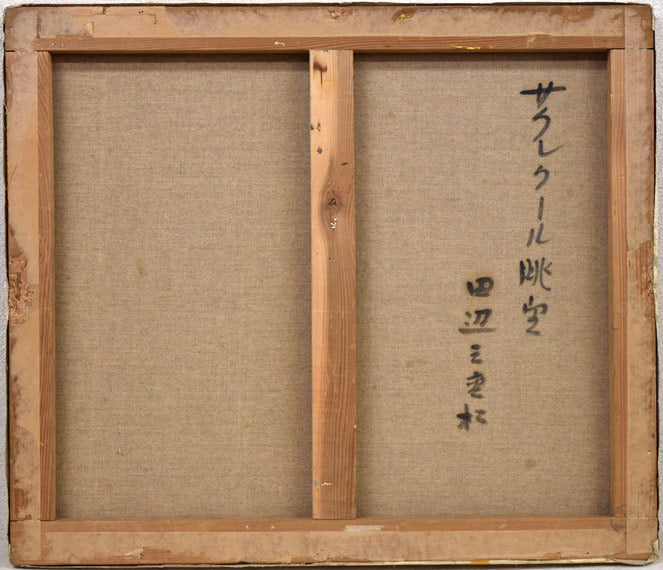 サクレクール眺望
田辺三重松